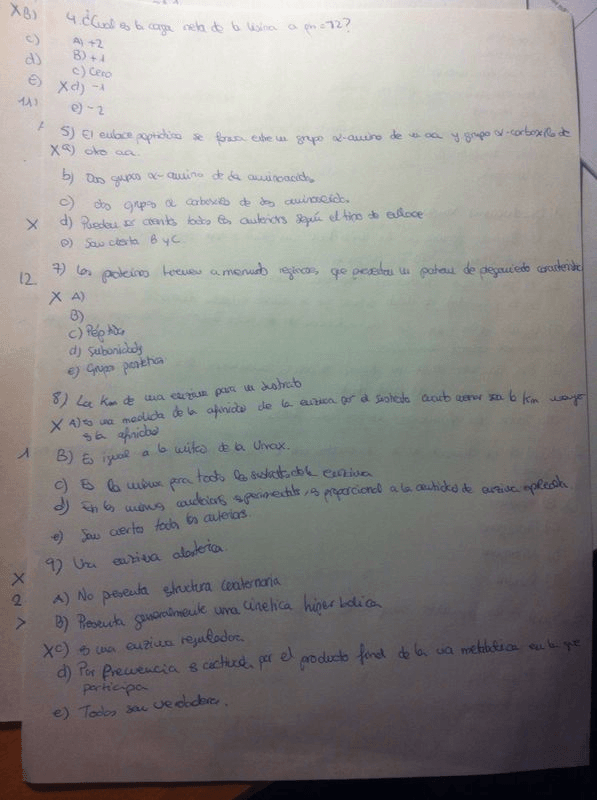 4. ¿Cual es la carga neta de la lisina a pH = 12?
A) +2
B) +1
c) Cero
X d) -1
e) -2
5) El enlace peptidico se forma entre un grupo α-amino de un aa y grupo α-carboxilo de
X a) otro aa.
b) Dos grupos α-amino de dos aminoacidos.
c) dos grupos α carboxilo de dos aminoacidos.
d) Pueden ser ciertas todas las anteriores según el tipo de enlace
e) Son cierta B y C.
7) Las proteinas tienen a menudo regiones, que presentan un patron de plegamiento caracteristico
X A)
B)
c) Péptidos
d) Subunidades
e) Grupos prosteticos
8) La Km de una enzima para un sustrato
X A) es una medida de la afinidad de la enzima por el sustrato cuanto menor sea la Km mayor
es la afinidad
B) Es igual a la mitad de la Vmax.
c) Es la misma para todos los sustratos de la enzima
d) En las mismas condiciones experimentales, es proporcional a la cantidad de enzima
e) Son ciertas todas las anteriores.
9) Una enzima alosterica.
A) No presenta structura cuaternaria
B) Presenta generalmente una cinetica hiperbolica
X c) es una enzima reguladora.
d) Por frecuencia es activada por el producto final de la via metabolica en la que
participa
e) Todas son verdaderas.
X B)
c)
d)
E)
11)
X
12
1
X
2
>